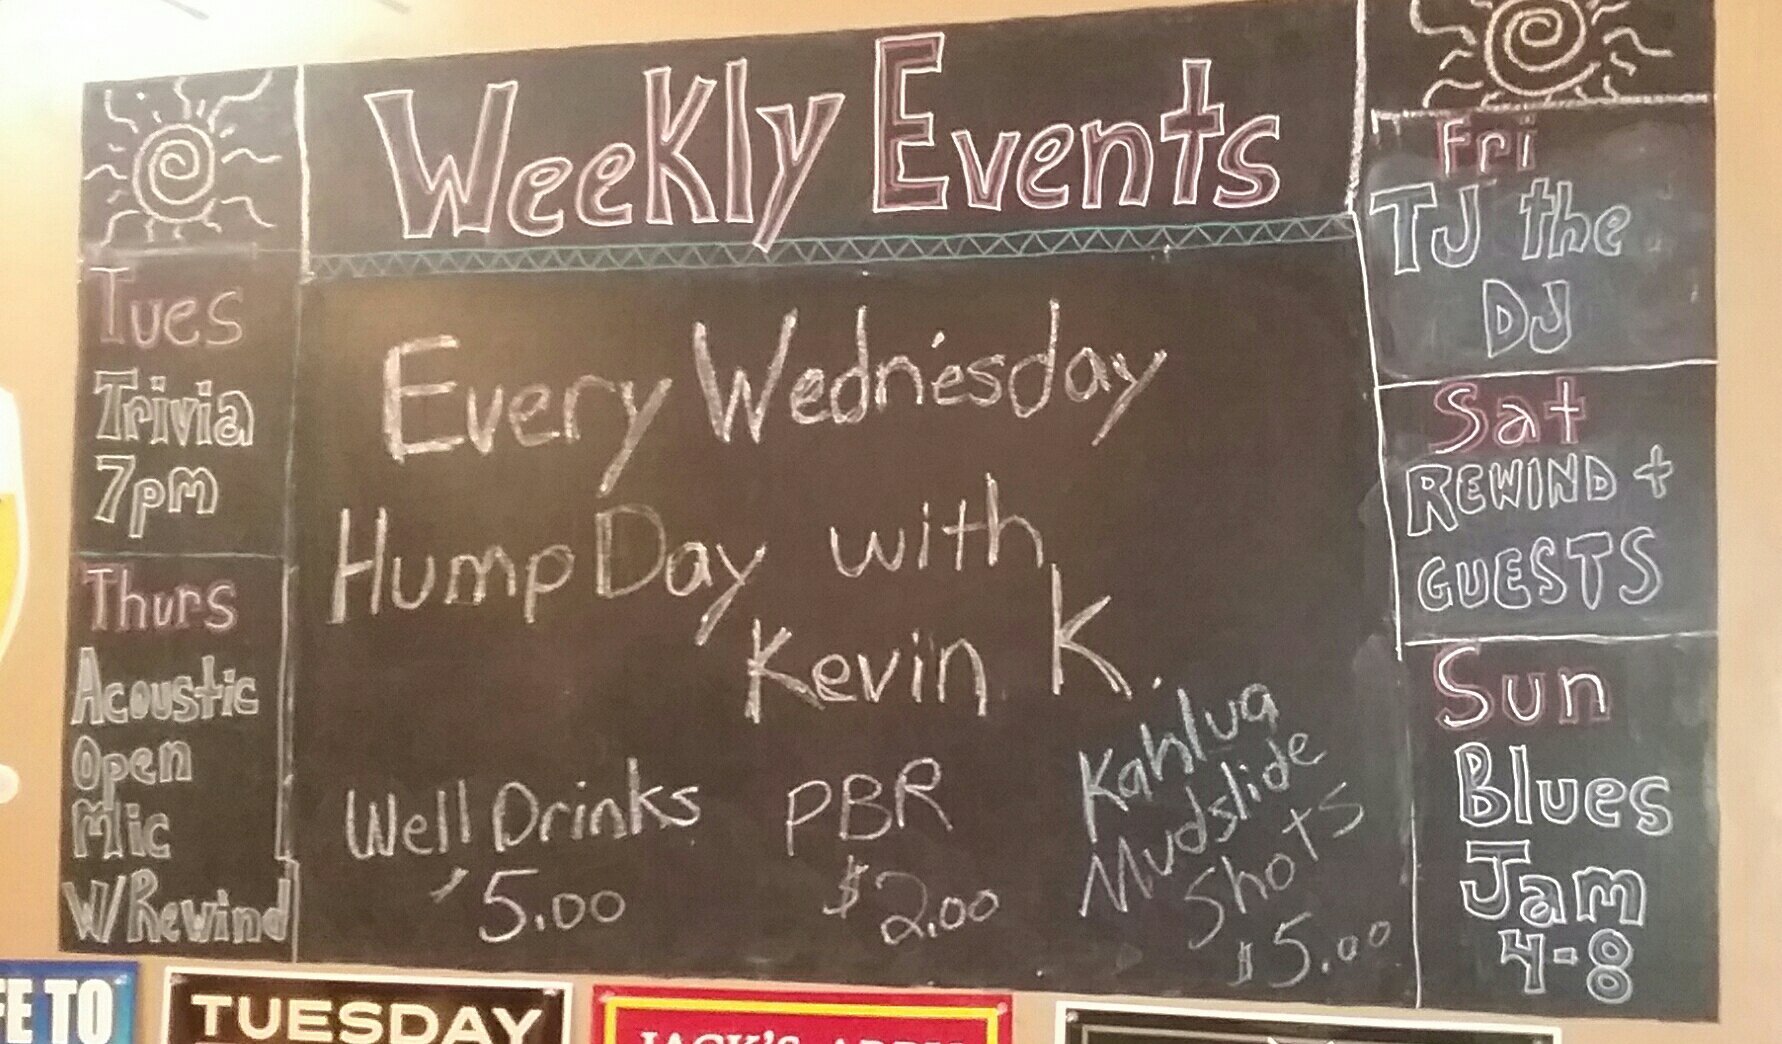 Weekly Events
Tues
Trivia
7pm
Thurs
Acoustic
Open
Mic
W/Rewind
Every Wednesday
Hump Day with
Kevin K.
Well Drinks
$5.00
PBR
$2.00
Kahlua
Mudslide
Shots
$5.00
Fri
TJ the
DJ
Sat
REWIND +
GUESTS
Sun
Blues
Jam
4-8
TO
TUESDAY
JACK'S